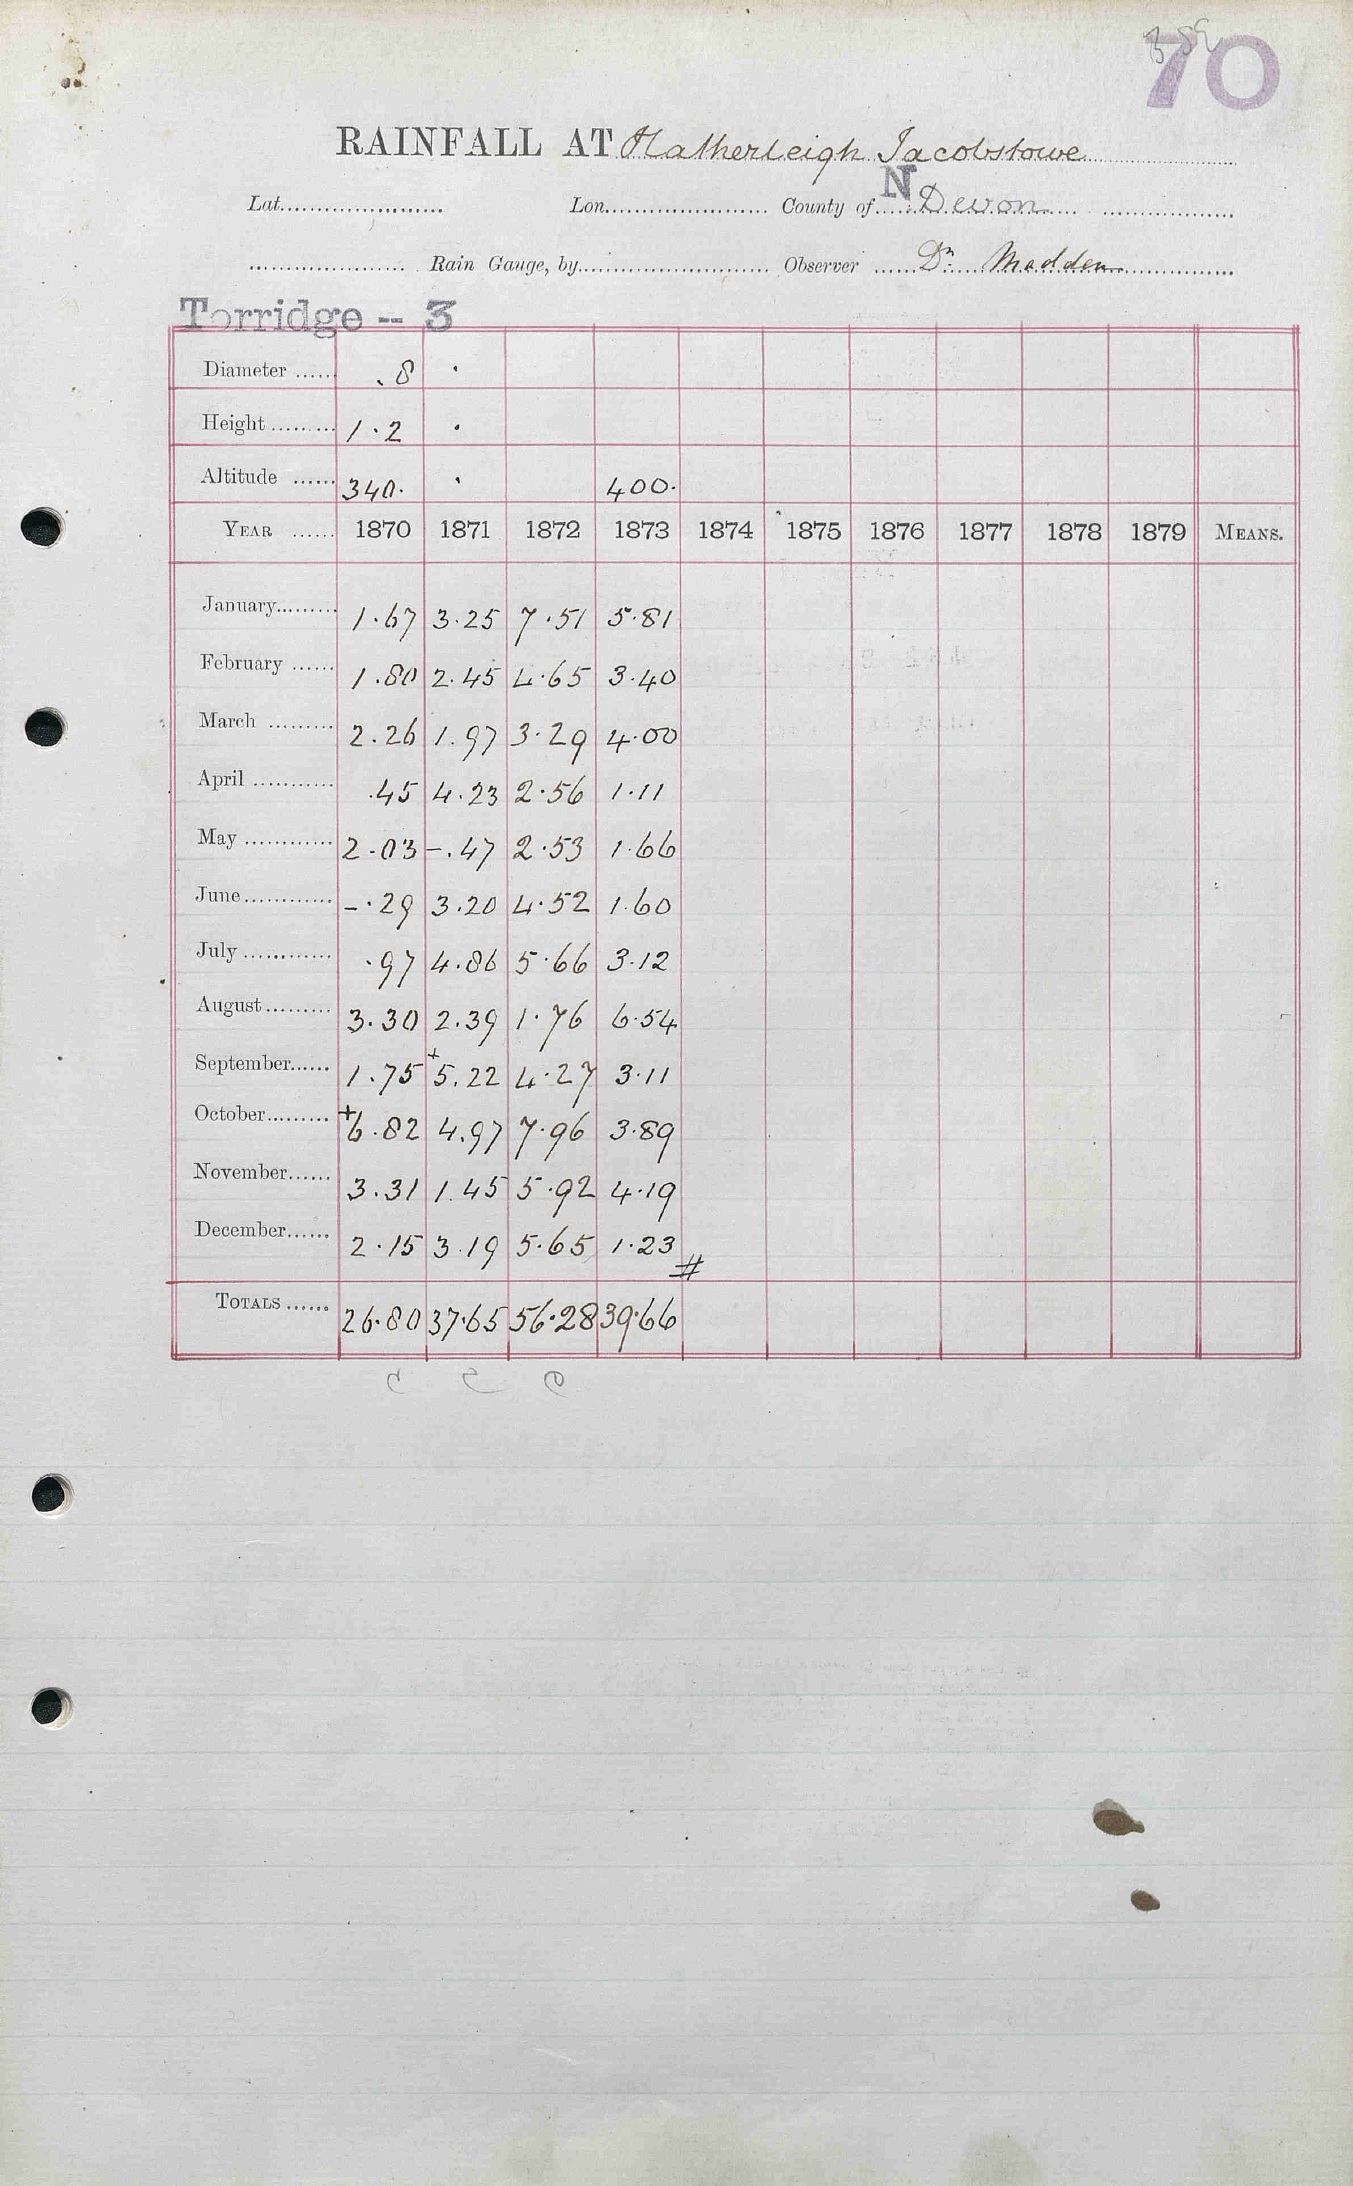 70
RAINFALL AT Hatherleigh Jacobstowe
Lat. Lon. County of N Devon
Rain Gauge, by Observer Dr. Madden
Torridge - 3
Diameter ...... .8 .
Height ......... 1.2 .
Altitude ...... 340. . 400.
YEAR ...... 1870 1871 1872 1873 1874 1875 1876 1877 1878 1879 MEANS.
January......... 1.67 3.25 7.51 5.81
February ...... 1.80 2.45 4.65 3.40
March ......... 2.26 1.97 3.29 4.00
April ............ .45 4.23 2.56 1.11
May ............ 2.03 -.47 2.53 1.66
June............ -.29 3.20 4.52 1.60
July ............ .97 4.86 5.66 3.12
August......... 3.30 2.39 1.76 6.54
September...... 1.75 +5.22 4.27 3.11
October......... +6.82 4.97 7.96 3.89
November...... 3.31 1.45 5.92 4.19
December...... 2.15 3.19 5.65 1.23 #
TOTALS ...... 26.80 37.65 56.28 39.66